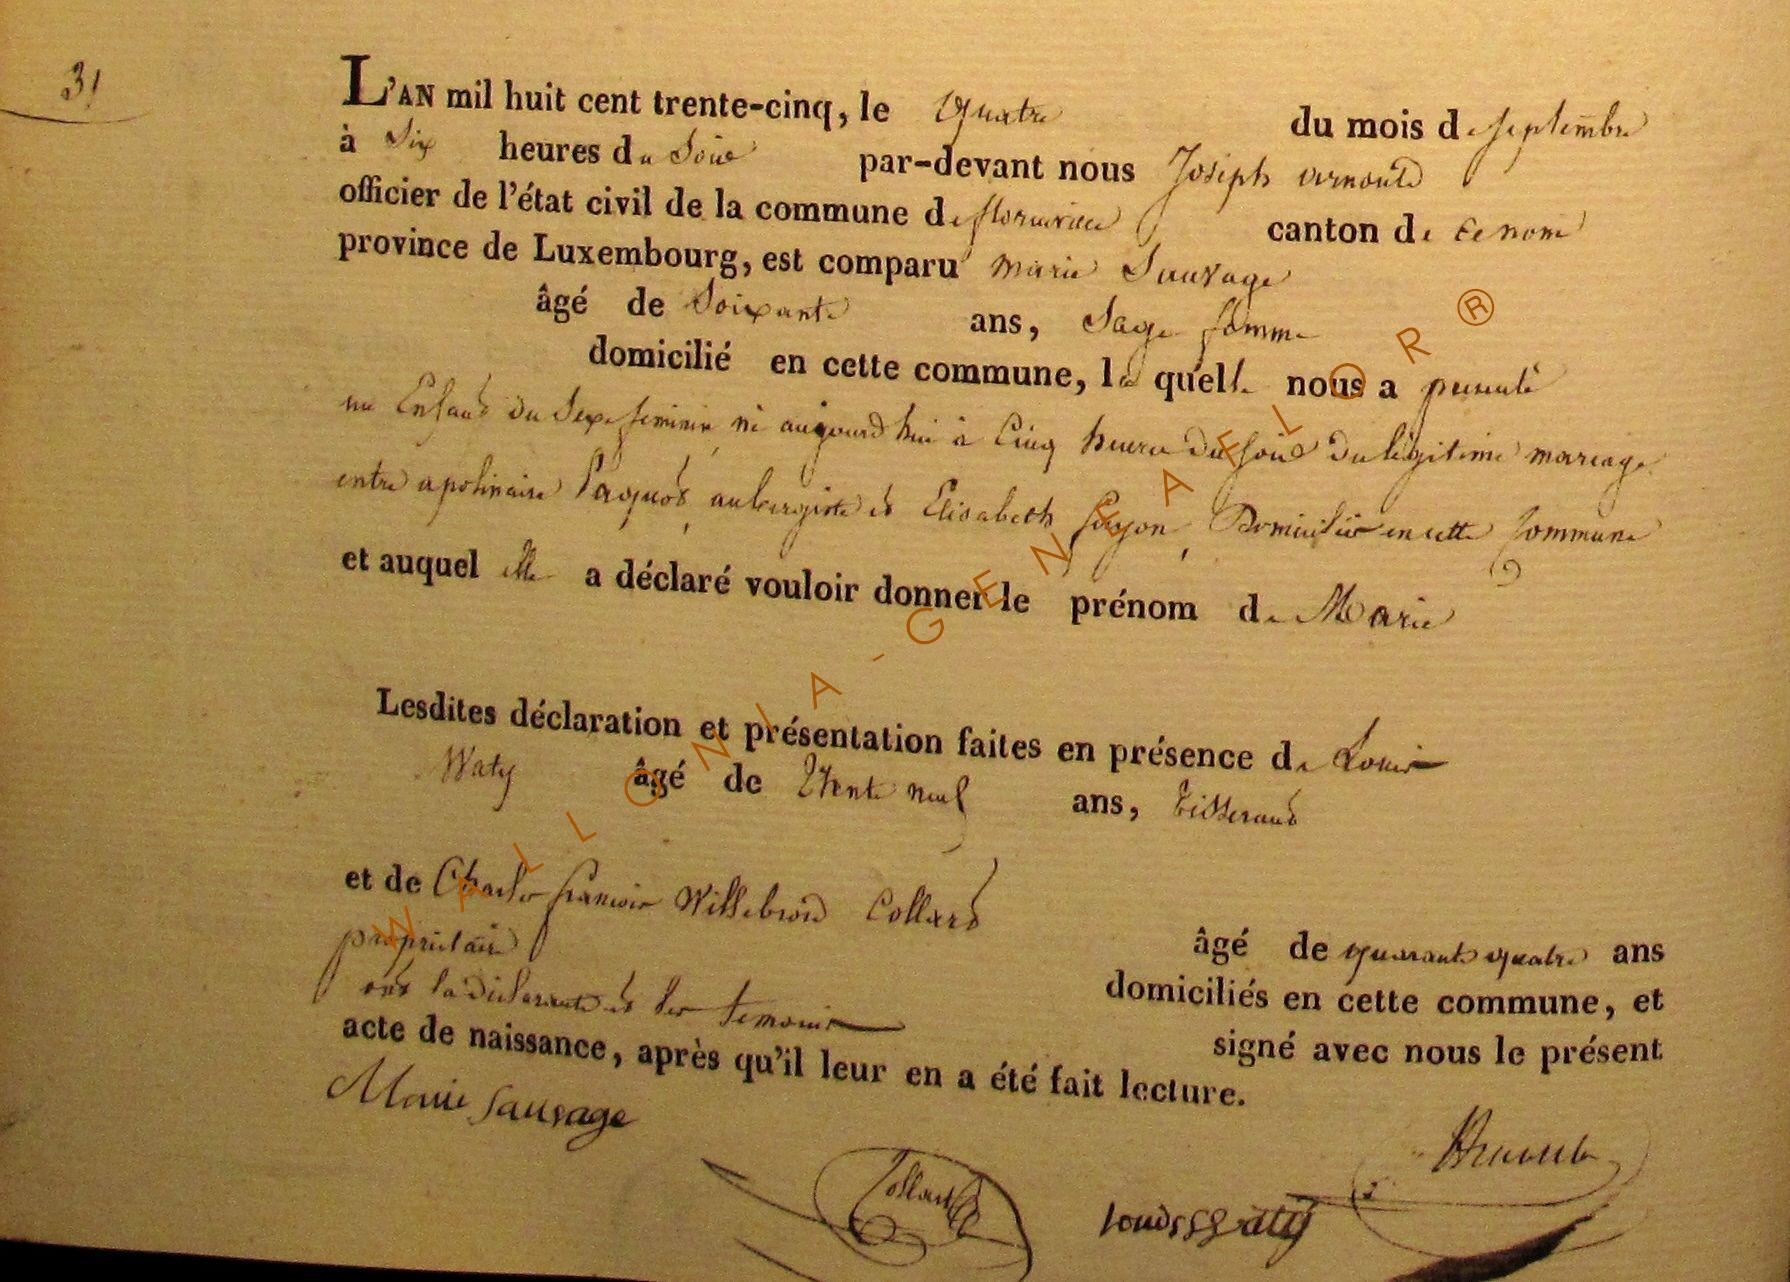 31
L'AN mil huit cent trente-cinq, le quatre du mois de septembre
à six heures du soir par-devant nous Joseph arnould
officier de l'état civil de la commune de florenville canton de
province de Luxembourg, est comparu marie Sauvage
âgé de Soixante ans, Sage femme
domicilié en cette commune, la quelle nous a presenté
un Enfant du Sexe feminin, né aujourd hui à Cinq heures du soir du légitime mariage
entre apolinaire Paquot, aubergiste et Elisabeth, Domiciliés en cette Commune
et auquel elle a déclaré vouloir donner le prénom de Marie
Lesdites déclaration et présentation faites en présence de Louis
Waty âgé de trente neuf ans, tisserand
et de Charles françois Willebrord Collard
propriétaire âgé de quarante quatre ans
domiciliés en cette commune, et
ont la déclarante et les temoins signé avec nous le présent
acte de naissance, après qu'il leur en a été fait lecture.
Marie Sauvage
Collard
louis Waty
WALLONIA-GENEAELOR®